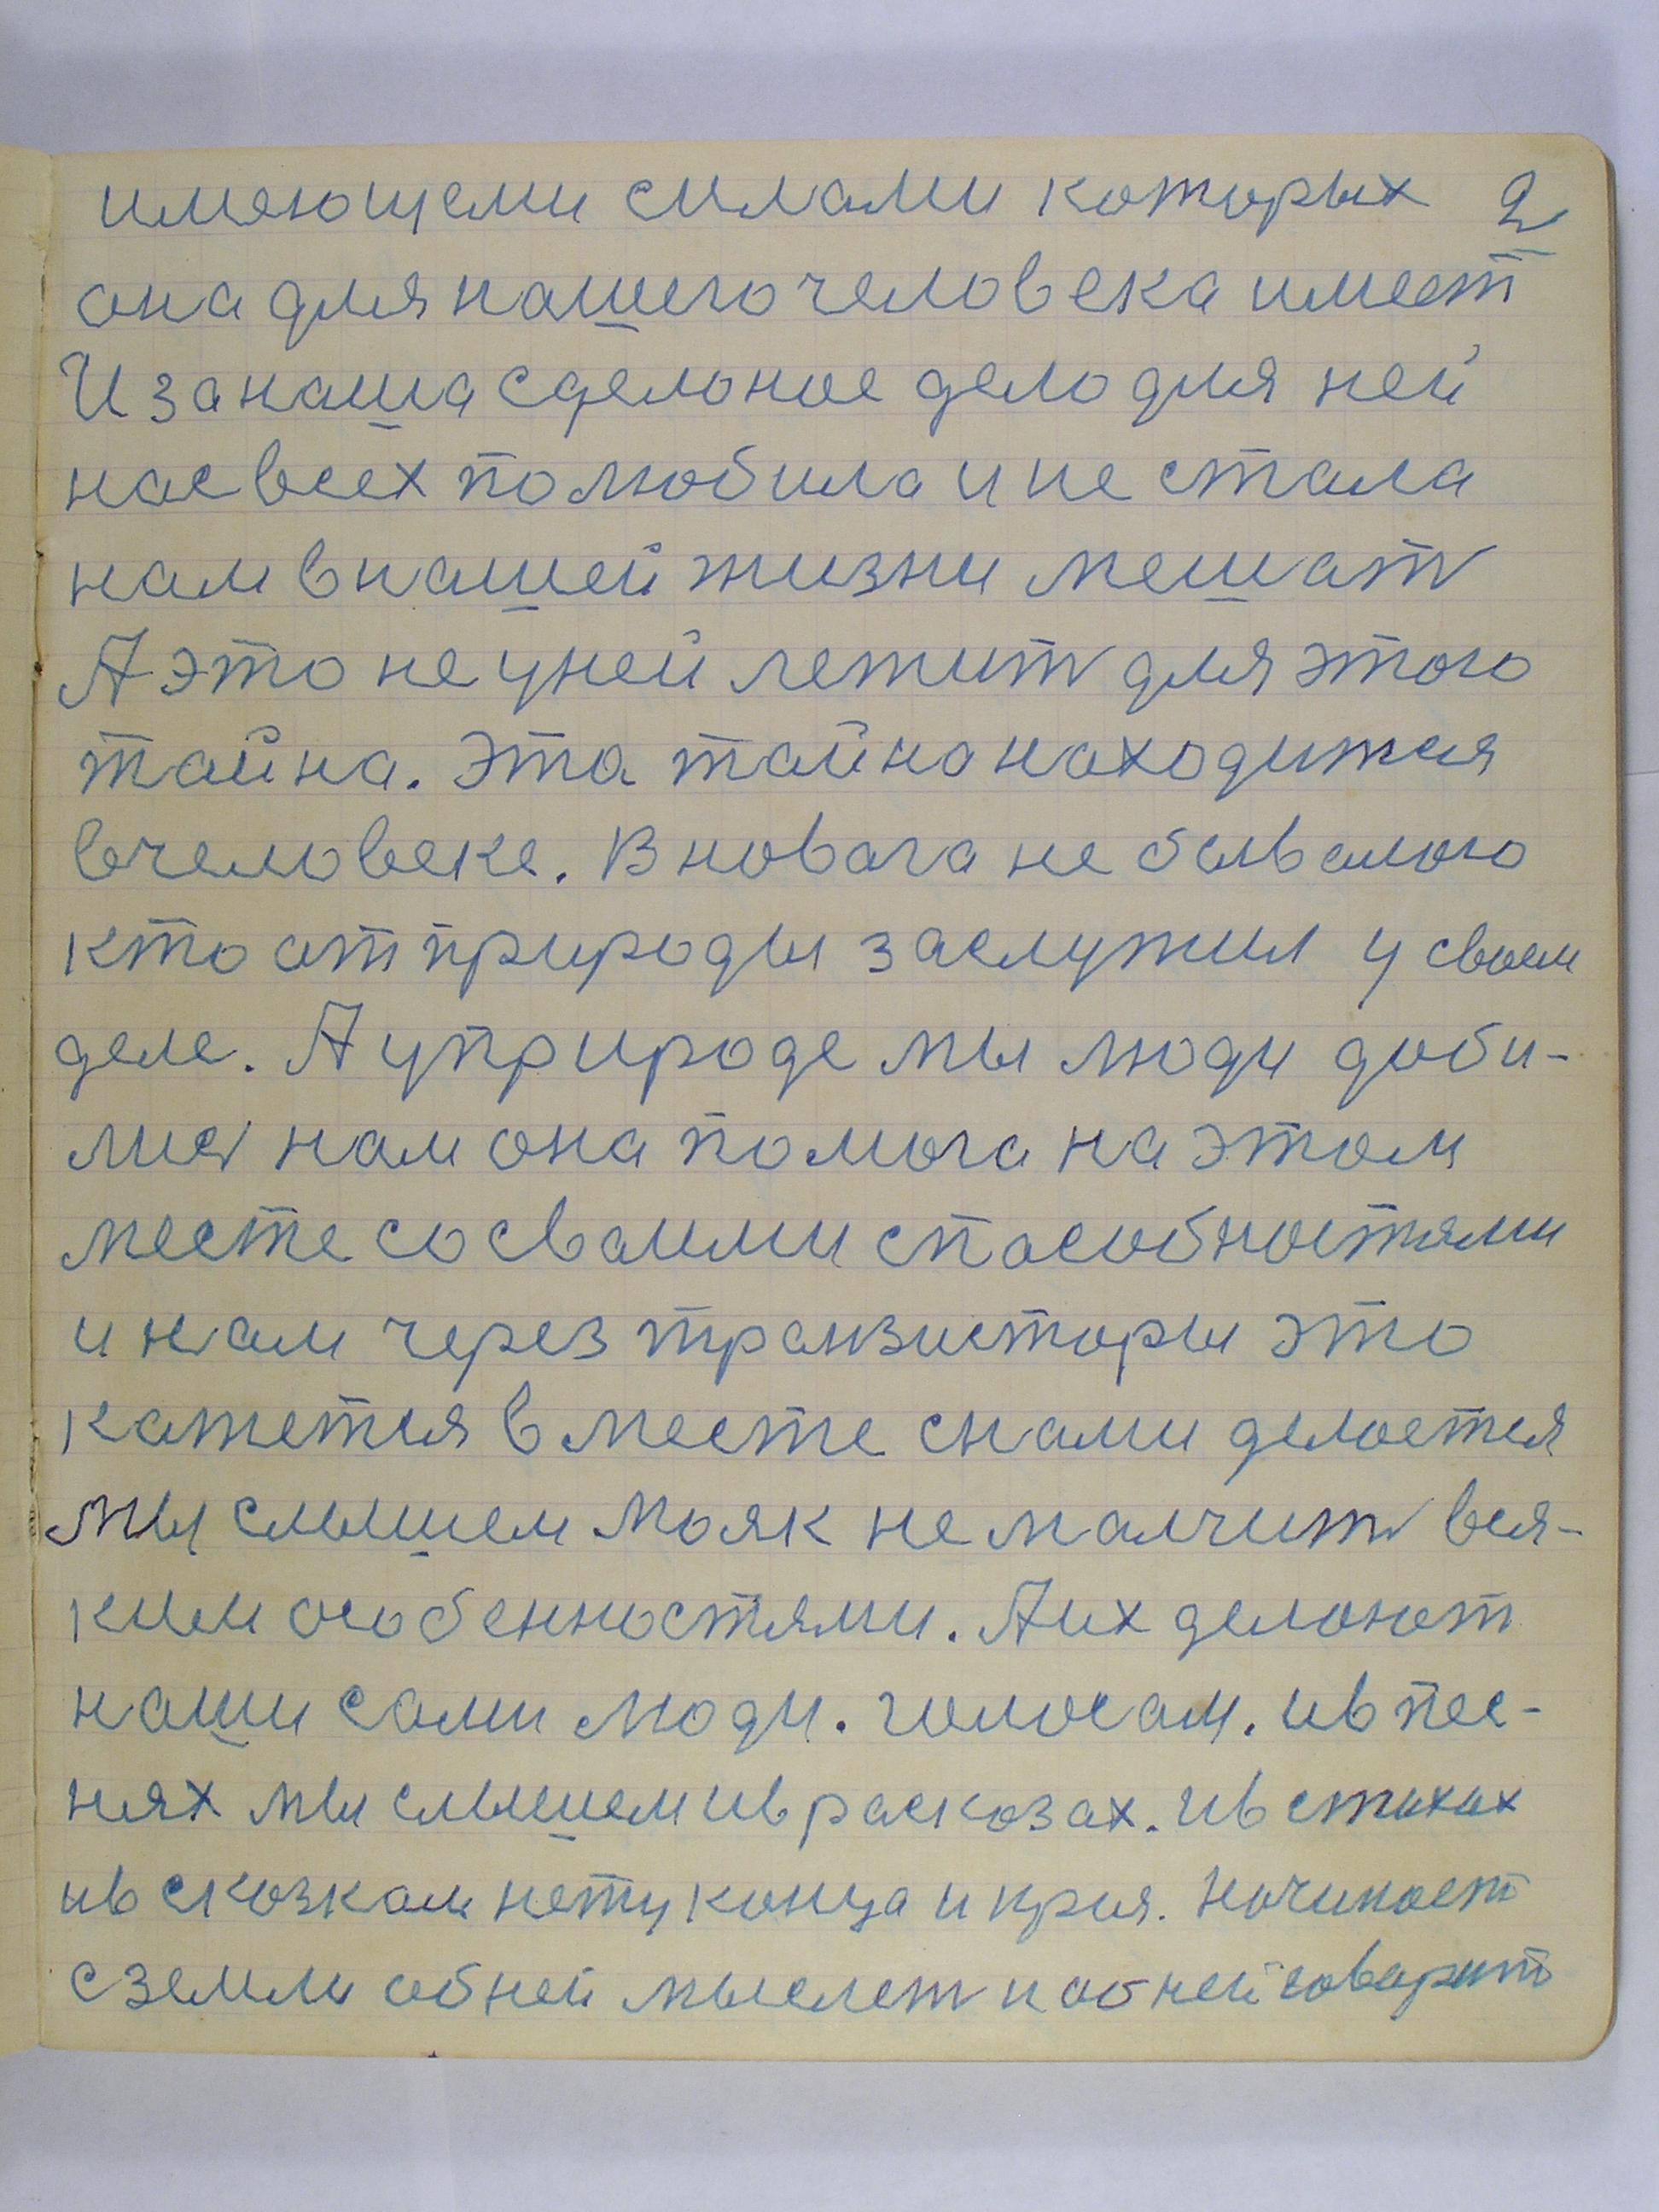 имеющеми силами которых 2
она для нашего человека имеет
И за наша сделоное дело для ней
нас всех полюбила и не стала
нам в нашей жизни мешать
А это не у ней лежить для этого
тайна. Эта тайна находится
в человеке. В новага не бывалого
кто от природы заслужил у своем
деле. А у природе мы люди доби-
лися нам она помога на этом
месте со сваими способностями
и нам через транзисторы это
кажется вместе с нами делается
мы слышем Маяк не малчить вся-
ким особенностями. А их делают
наши сами люди. голосам. и в пес-
нях мы слышем и в расказах. и в стихах
и в сказкам нету конца и края. Начинает
с земли об ней мыслеть и об ней говорит